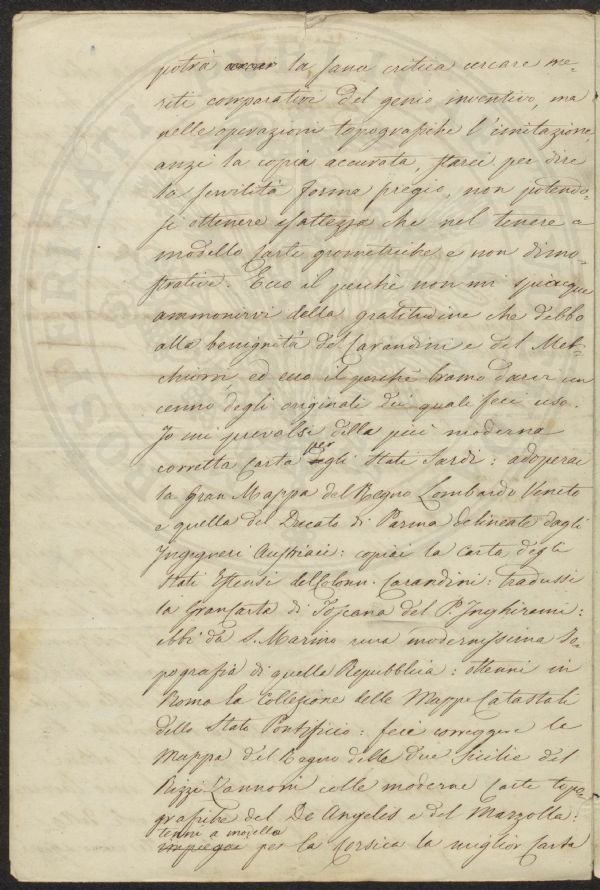 potrà la sana critica cercare me-
riti comparativi del genio inventivo, ma
nelle operazioni topografiche l'imitazione,
anzi la copia accurata, starei per dire
la servilità forma pregio, non potendo-
si ottenere esattezza che nel tenere a
modello carte geometriche e non dimo-
strative. Ecco il perchè non mi spiacque
ammonirvi della gratitudine che debbo
alla benignità del Carandini e del Mel-
chiorri, ed ecco il perchè bramo darvi un
cenno degli originali dei quali feci uso.
Io mi prevalsi della più moderna
per
corretta carta gli Stati Sardi: adoperai
la Gran Mappa del Regno Lombardo Veneto
e quella del Ducato di Parma delineate dagli
Ingegneri Austriaci: copiai la carta degli
Stati Estensi del Colonn. Carandini: tradussi
la Gran Carta di Toscana del P. Inghirami:
ebbi da S. Marino una modernissima To-
pografia di quella Repubblica: ottenni in
Roma la Collezione delle Mappe Catastali
dello Stato Pontificio: feci correggere la
Mappa del Regno delle due Sicilie del
Rizzi-Zannoni colle moderne carte topo-
grafiche del De Angelis e del Marzolla:
tenni a modello
impiegai per la Corsica la miglior Carta
PROSPERITATI PUBLICAE